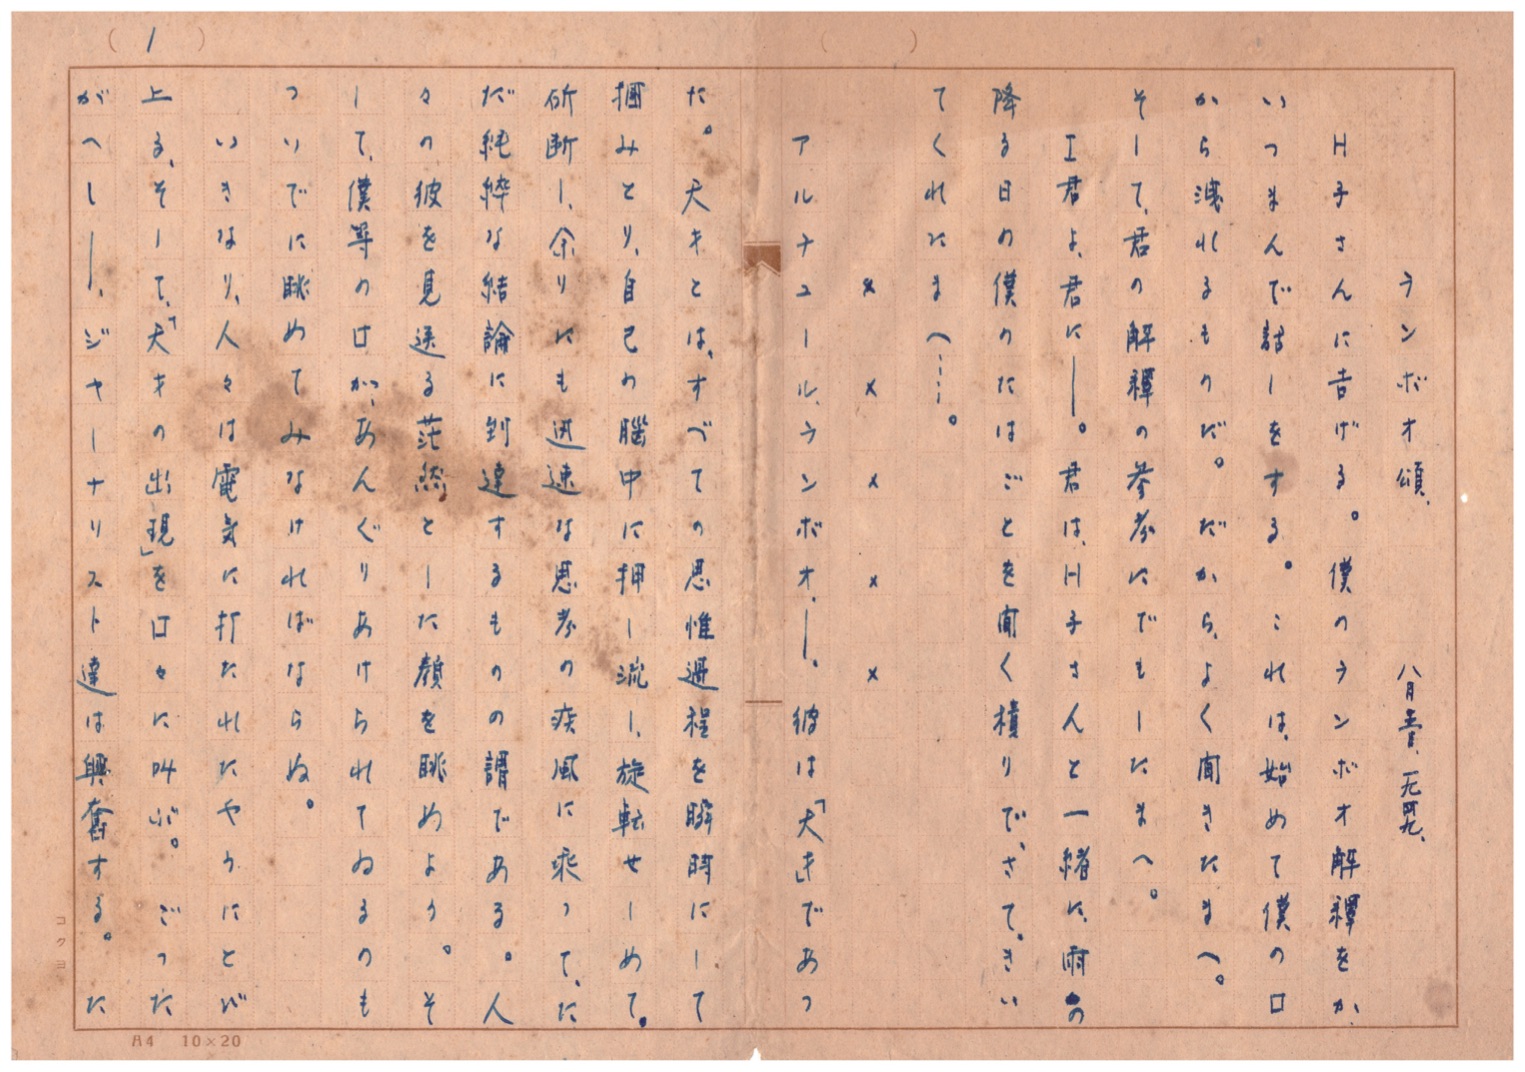 ( 1 )
ランボオ頌、 八月壹日、元晃、
H子さんに告げる。僕のランボオ解釋をか、
いつまんで話しをする。これは、始めて僕の口
から洩れるものだ。だから、よく聞きたまへ。
そして、君の解釋の参考にでもしたまへ。
I君よ、君に――。君は、H子さんと一緒に、雨の
降る日の僕のたはごとを聞く積りで、さて、きい
てくれたまへ……。
× × × × ×
アルチュール、ランボオ、――。彼は「天才」であつ
た。天才とは、すべての思惟過程を瞬時にして
掴みとり、自己の腦中に押し流し、旋転せしめて。
斫断し、余りにも迅速な思考の疾風に乘つて、た
だ純粹な結論に到達するものの謂である。人
々の彼を見送る茫然とした顏を眺めよう。そ
して、僕等の口が、あんぐりあけられてゐるのも
ついでに眺めてみなければならぬ。
いきなり、人々は電気に打たれたやうにとび
上る、そして、「天才の出現」を口々に叫ぶ。ごつた
がへし――、ジャーナリスト達は興奮する。た
コクヨ
A4 10×20